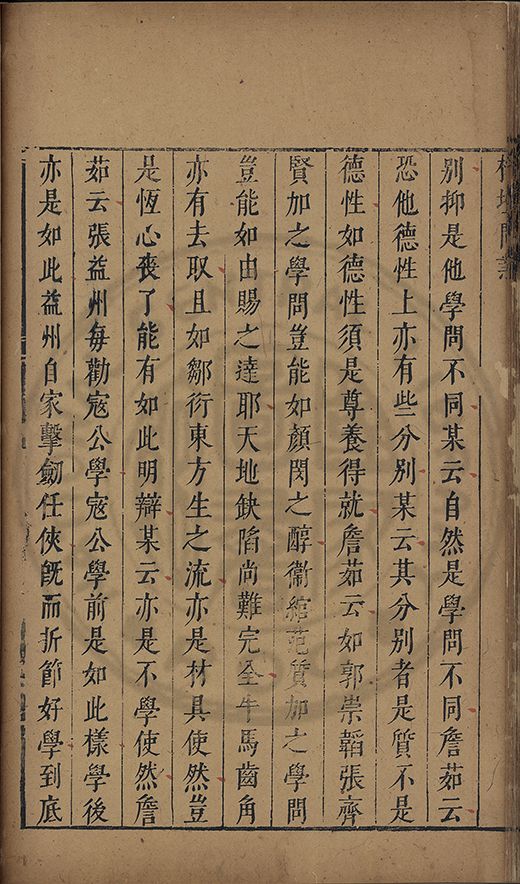 榕壇問業
別抑是他學問不同某云自然是學問不同詹茹云
恐他德性上亦有些分別某云其分別者是質不是
德性如德性須是尊養得就詹茹云如郭崇韜張齊
賢加之學問豈能如顏閔之醇衞綰范質加之學問
豈能如由賜之達耶天地缺陷尚難完全牛馬齒角
亦有去取且如鄒衍東方生之流亦是材具使然豈
是恆心喪了能有如此明辯某云亦是不學使然詹
茹云張益州每勸寇公學寇公學前是如此樣學後
亦是如此益州自家擊劒任俠旣而折節好學到底